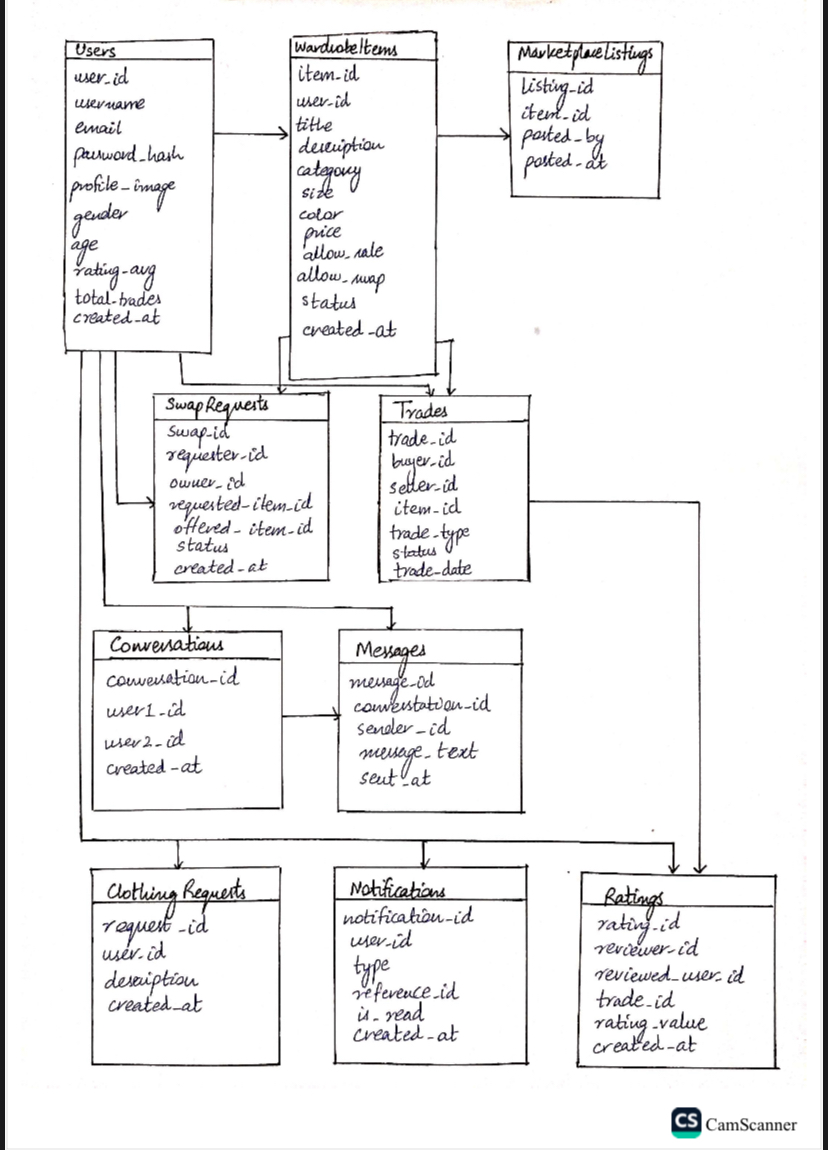 Users
user_id
username
email
password_hash
profile_image
gender
age
rating_avg
total_trades
created_at
WardrobeItems
item_id
user_id
title
description
category
size
color
price
allow_sale
allow_swap
status
created_at
MarketplaceListings
Listing_id
item_id
posted_by
posted_at
SwapRequests
Swap_id
requester_id
owner_id
requested_item_id
offered_item_id
status
created_at
Trades
trade_id
buyer_id
seller_id
item_id
trade_type
status
trade_date
Conversations
conversation_id
user1_id
user2_id
created_at
Messages
message_id
converstation_id
sender_id
message_text
sent_at
Clothing Requests
request_id
user_id
description
created_at
Notifications
notification_id
user_id
type
reference_id
is_read
created_at
Ratings
rating_id
reviewer_id
reviewed_user_id
trade_id
rating_value
created_at
CS CamScanner